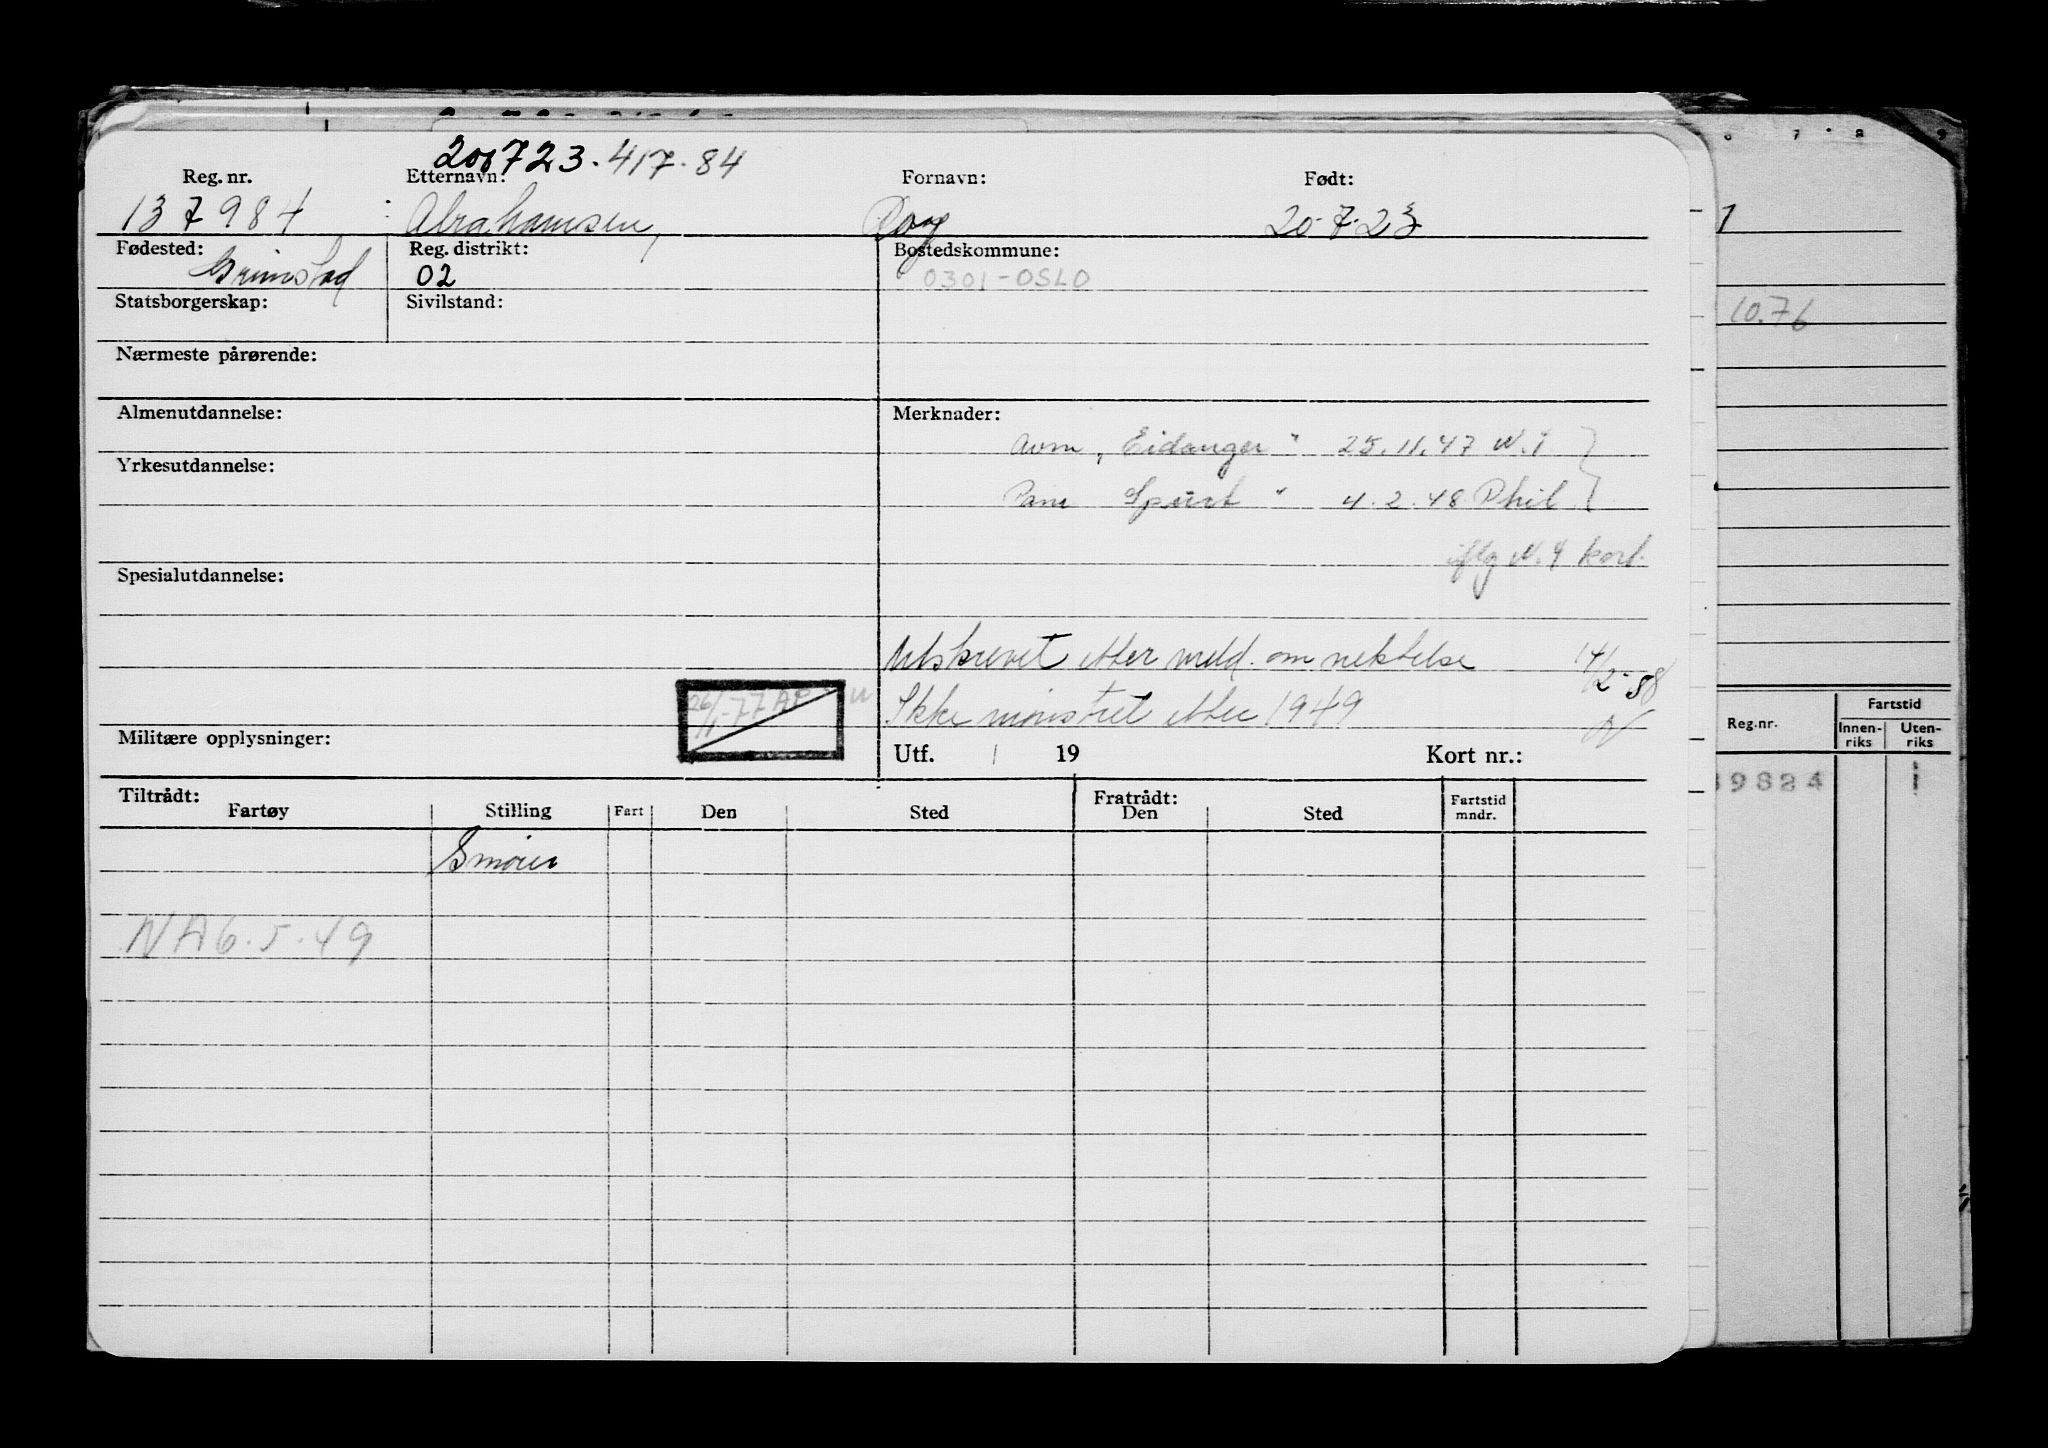 200723.417.84
Reg. nr. Etternavn: Fornavn: Født:
137984 Abrahamsen, Dag 20.7.23
Fødested: Reg. distrikt: Bostedskommune:
Grimstad 02 0301-OSLO
Statsborgerskap: Sivilstand:
10.76
Nærmeste pårørende:
Almenutdannelse: Merknader:
Avm „Eidanger" 25.11.47
Yrkesutdannelse:
4.2.48 Phil
iflg N.Y kort.
Spesialutdannelse:
Utskrevet etter meld. om nektelse 14/2-58
26/1-77
Ikke mønstret etter 1949
N
Militære opplysninger: Utf. / 19 Kort nr.:
Reg.nr. Fartstid
Innen-riks Uten-riks
9824 1
Tiltrådt: Fratrådt:
Fartøy Stilling Fart Den Sted Den Sted Fartstid mndr.
Smører
NA 6.5.49